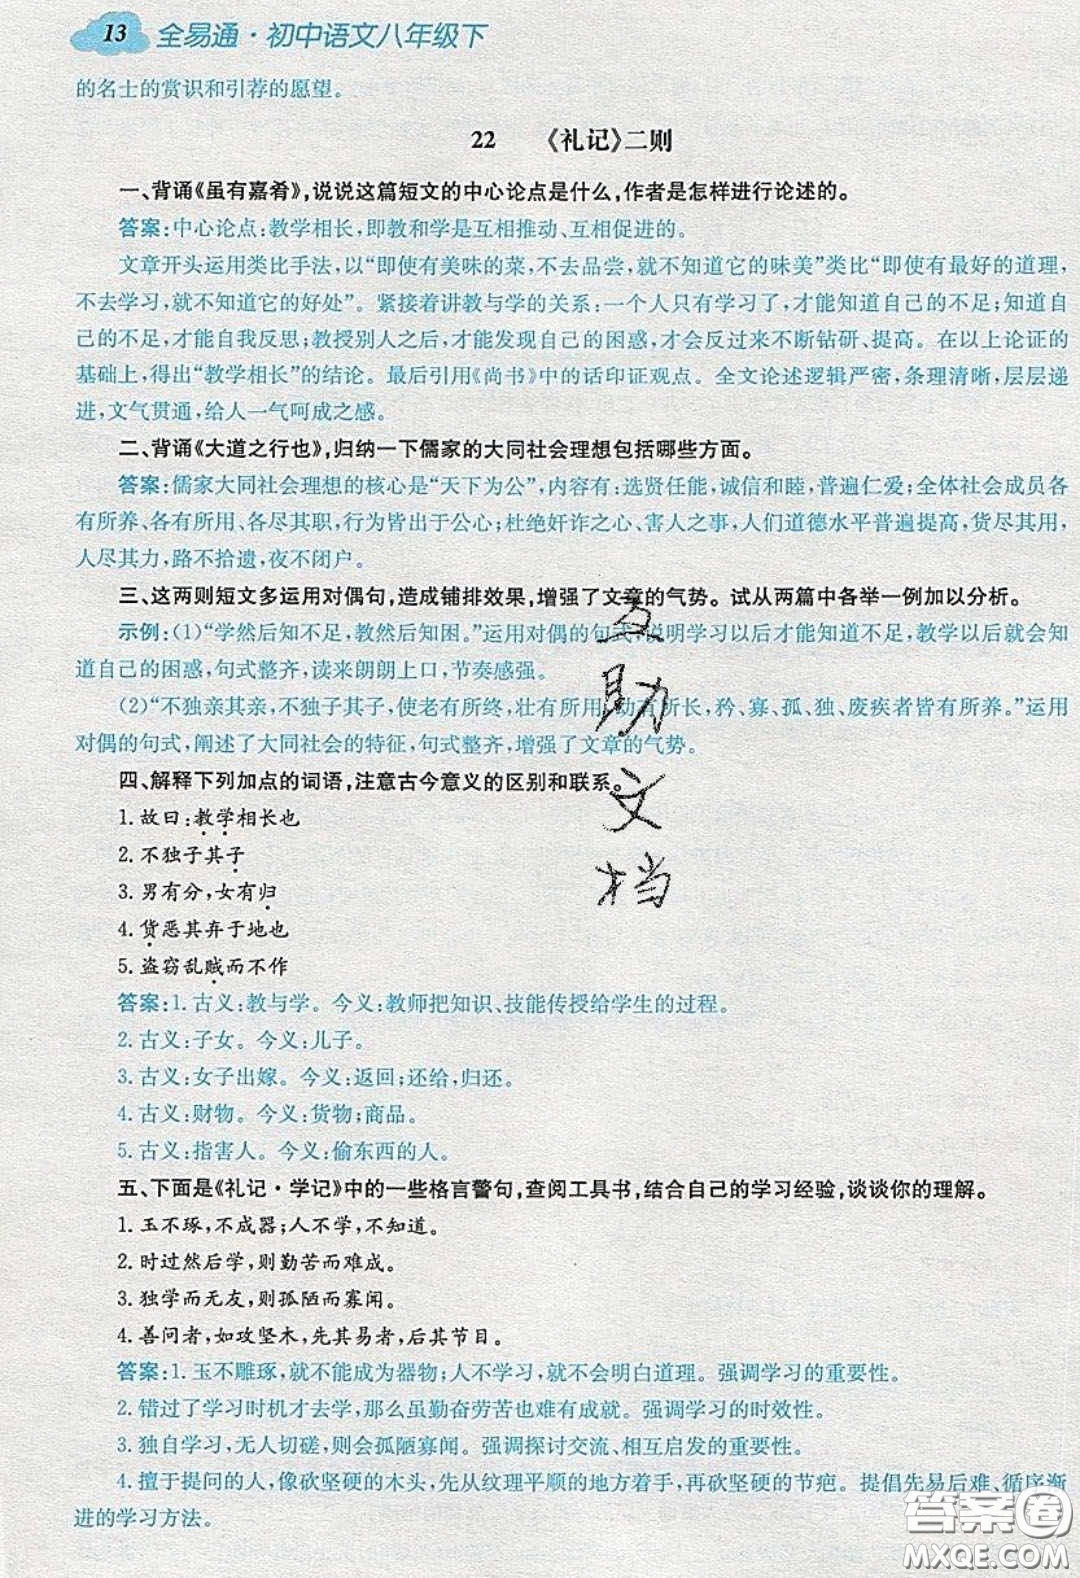 13 全易通·初中语文八年级下
的名士的赏识和引荐的愿望。
22 《礼记》二则
一、背诵《虽有嘉肴》,说说这篇短文的中心论点是什么,作者是怎样进行论述的。
答案:中心论点:教学相长,即教和学是互相推动、互相促进的。
文章开头运用类比手法,以“即使有美味的菜,不去品尝,就不知道它的味美”类比“即使有最好的道理,
不去学习,就不知道它的好处”。紧接着讲教与学的关系:一个人只有学习了,才能知道自己的不足;知道自
己的不足,才能自我反思;教授别人之后,才能发现自己的困惑,才会促使自己不断钻研、提高。在以上论证的
基础上,得出“教学相长”的结论。最后引用《尚书》中的话印证观点。全文论述逻辑严密,条理清晰,层层递
进,文气贯通,给人一气呵成之感。
二、背诵《大道之行也》,归纳一下儒家的大同社会理想包括哪些方面。
答案:儒家大同社会理想的核心是“天下为公”,内容有:选贤任能,诚信和睦,普遍仁爱;全体社会成员各
有所养、各有所用、各尽其职,行为皆出于公心;杜绝奸诈之心、害人之事,人们道德水平普遍提高,货尽其用,
人尽其力,路不拾遗,夜不闭户。
三、这两则短文多运用对偶句,造成铺排效果,增强了文章的气势。试从两篇中各举一例加以分析。
示例:(1)“学然后知不足,教然后知困。”运用对偶的句式,说明学习以后才能知道不足,教学以后就会知
道自己的困惑,句式整齐,读来朗朗上口,节奏感强。
(2)“不独亲其亲,不独子其子,使老有所终,壮有所用,幼有所长,矜、寡、孤、独、废疾者皆有所养。”运用
对偶的句式,阐述了大同社会的特征,句式整齐,增强了文章的气势。
四、解释下列加点的词语,注意古今意义的区别和联系。
1. 故曰:教学相长也
2. 不独子其子
3. 男有分,女有归
4. 货恶其弃于地也
5. 盗窃乱贼而不作
答案:1. 古义:教与学。今义:教师把知识、技能传授给学生的过程。
2. 古义:子女。今义:儿子。
3. 古义:女子出嫁。今义:返回;还给,归还。
4. 古义:财物。今义:货物;商品。
5. 古义:指害人。今义:偷东西的人。
五、下面是《礼记·学记》中的一些格言警句,查阅工具书,结合自己的学习经验,谈谈你的理解。
1. 玉不琢,不成器;人不学,不知道。
2. 时过然后学,则勤苦而难成。
3. 独学而无友,则孤陋而寡闻。
4. 善问者,如攻坚木,先其易者,后其节目。
答案:1. 玉不雕琢,就不能成为器物;人不学习,就不会明白道理。强调学习的重要性。
2. 错过了学习时机才去学,那么虽勤奋劳苦也难有成就。强调学习的时效性。
3. 独自学习,无人切磋,则会孤陋寡闻。强调探讨交流、相互启发的重要性。
4. 擅于提问的人,像砍坚硬的木头,先从纹理平顺的地方着手,再砍坚硬的节疤。提倡先易后难、循序渐
进的学习方法。
互助文档
答案圈
MXQE.COM